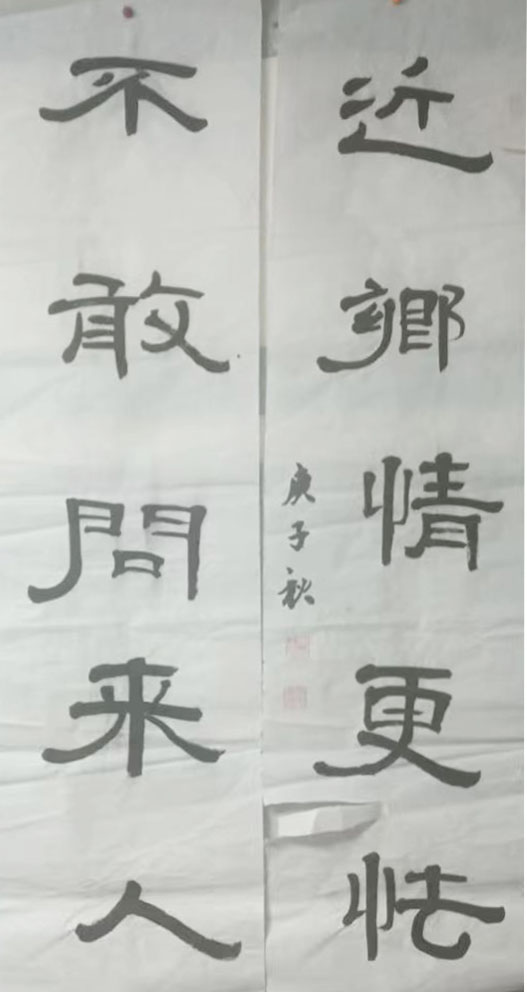 近鄉情更怯
庚子秋
不敢問来人